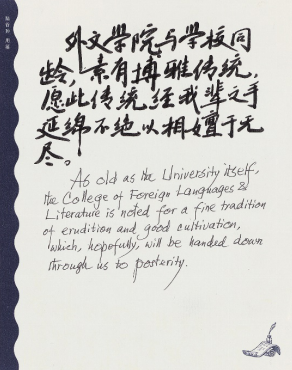 外文学院与学校同
龄，素有博雅传统，
愿此传统经我辈之手
延绵不绝以相嬗于无
尽。
As old as the University itself,
the College of Foreign Languages &
Literature is noted for a fine tradition
of erudition and good cultivation,
which, hopefully, will be handed down
through us to posterity.